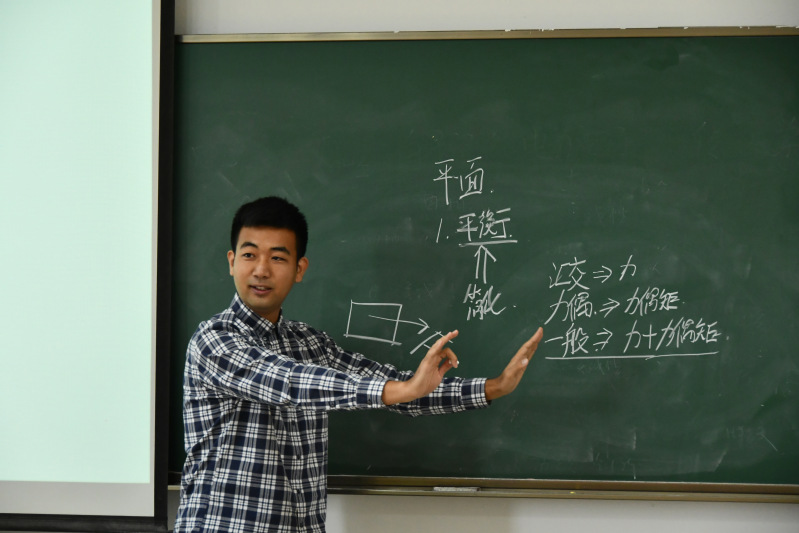 平面.
1. 平衡.
⇑
简化.
汇交 ⇒ 力
力偶. ⇒ 力偶矩.
一般. ⇒ 力+力偶矩.